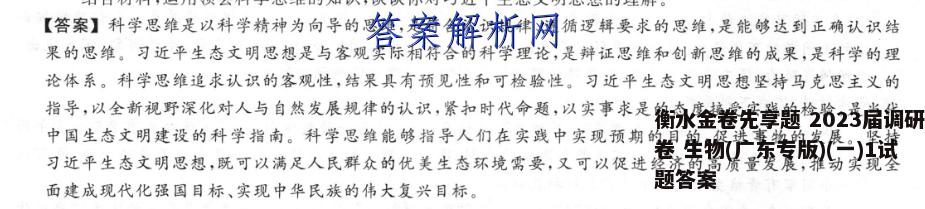 结合材料,运用横会科学思维的知识,谈谈你对习近平生态文明思想的理解。
【答案】科学思维是以科学精神为向导的思维,是符合认识规律、遵循逻辑要求的思维,是能够达到正确认识结
果的思维。习近平生态文明思想是与客观实际相符合的科学理论,是辩证思维和创新思维的成果,是科学的理
论体系。科学思维追求认识的客观性,结果具有预见性和可检验性。习近平生态文明思想坚持马克思主义的
指导,以全新视野深化对人与自然发展规律的认识,紧扣时代命题,以实事求是的态度接受实践的检验,是当代
中国生态文明建设的科学指南。科学思维能够指导人们在实践中实现预期的目的,促进事物的发展。坚持
习近平生态文明思想,既可以满足人民群众的优美生态环境需要,又可以促进经济的高质量发展,推动实现全
面建成现代化强国目标、实现中华民族的伟大复兴目标。
答案解析网
衡水金卷先享题 2023届调研
卷 生物(广东专版)(一)1试
题答案